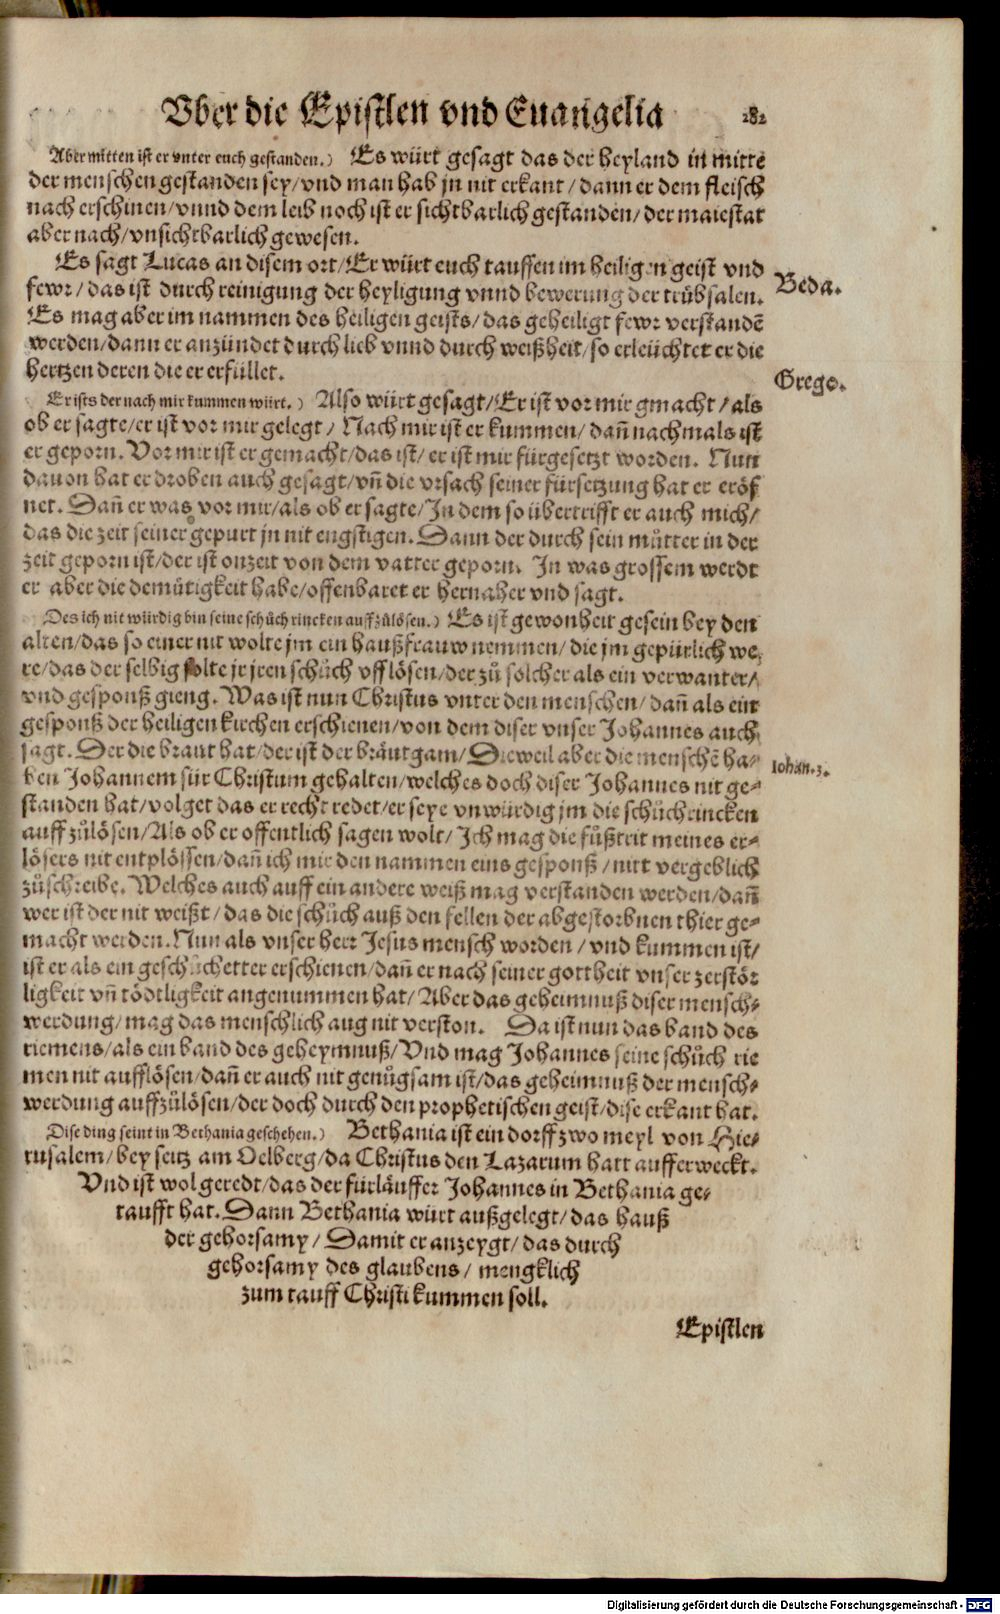 Vber die Epistlen vnd Euangelia 282
Aber mitten ist er vnter euch gestanden.) Es würt gesagt das der heyland in mitte
der menschen gestanden sey/vnd man hab jn nit erkant/dann er dem fleisch
nach erschinen/vnnd dem leib noch ist er sichtbarlich gestanden/der maiestat
aber nach/vnsichtbarlich gewesen.
Es sagt Lucas an disem ort/Er würt euch tauffen im heiligen geist vnd
fewr/das ist durch reinigung der heyligung vnnd bewerung der trübsalen.
Beda.
Es mag aber im nammen des heiligen geists/das geheiligt fewr verstandē
werden/dann er anzündet durch lieb vnnd durch weißheit/so erleüchtet er die
hertzen deren die er erfüllet.
Grego.
Er ists der nach mir kummen würt.) Also würt gesagt/Er ist vor mir gmacht/als
ob er sagte/er ist vor mir gelegt/Nach mir ist er kummen/dañ nachmals ist
er geporn. Vor mir ist er gemacht/das ist/er ist mir fürgesetzt worden. Nun
dauon hat er droben auch gesagt/vñ die vrsach seiner fürsetzung hat er eröf
net. Dañ er was vor mir/als ob er sagte/In dem so übertrifft er auch mich/
das die zeit seiner gepurt jn nit engstigen. Dann der durch sein můtter in der
zeit geporn ist/der ist onzeit von dem vatter geporn. In was grossem werdt
er aber die demütigkeit habe/offenbaret er hernaher vnd sagt.
Des ich nit würdig bin seine schůch rincken auff zůlösen.) Es ist gewonheit gesein bey den
alten/das so einer nit wolte jm ein haußfrauw nemmen/die jm gepürlich we-
re/das der selbig solte jr jren schůch vfflösen/der zů solcher als ein verwanter/
vnd gesponß gieng. Was ist nun Christus vnter den menschen/dañ als ein
gesponß der heiligen kirchen erschienen/von dem diser vnser Johannes auch
sagt. Der die braut hat/der ist der bräutgam/Dieweil aber die menschē ha-
Iohan.3.
ben Johannem für Christum gehalten/welches doch diser Johannes nit ge-
standen hat/volget das er recht redet/er seye vnwürdig jm die schůchrincken
auff zůlösen/Als ob er offentlich sagen wolt/Ich mag die fůßtrit meines er-
lösers nit entplössen/dañ ich mir den nammen eins gesponß/nitt vergeblich
zůschreibe. Welches auch auff ein andere weiß mag verstanden werden/dañ
wer ist der nit weißt/das die schůch auß den fellen der abgestorbnen thier ge-
macht werden. Nun als vnser herr Jesus mensch worden/vnd kummen ist/
ist er als ein geschůchetter erschienen/dañ er nach seiner gottheit vnser zerstör
ligkeit vñ tödtligkeit angenummen hat/Aber das geheimnuß diser mensch-
werdung/mag das menschlich aug nit verston. Da ist nun das band des
riemens/als ein band des geheymnuß/Vnd mag Johannes seine schůch rie
men nit aufflösen/dañ er auch nit genůgsam ist/das geheimnuß der mensch-
werdung auffzůlösen/der doch durch den prophetischen geist/dise erkant hat.
Dise ding seint in Bethania geschehen.) Bethania ist ein dorff zwo meyl von Hie-
rusalem/bey seitz am Oelberg/da Christus den Lazarum hatt aufferweckt.
Vnd ist wol geredt/das der fürläuffer Johannes in Bethania ge-
taufft hat. Dann Bethania würt außgelegt/das hauß
der gehorsamy/Damit er anzeygt/das durch
gehorsamy des glaubens/mengklich
zum tauff Christi kummen soll.
Epistlen
Digitalisierung gefördert durch die Deutsche Forschungsgemeinschaft - DFG